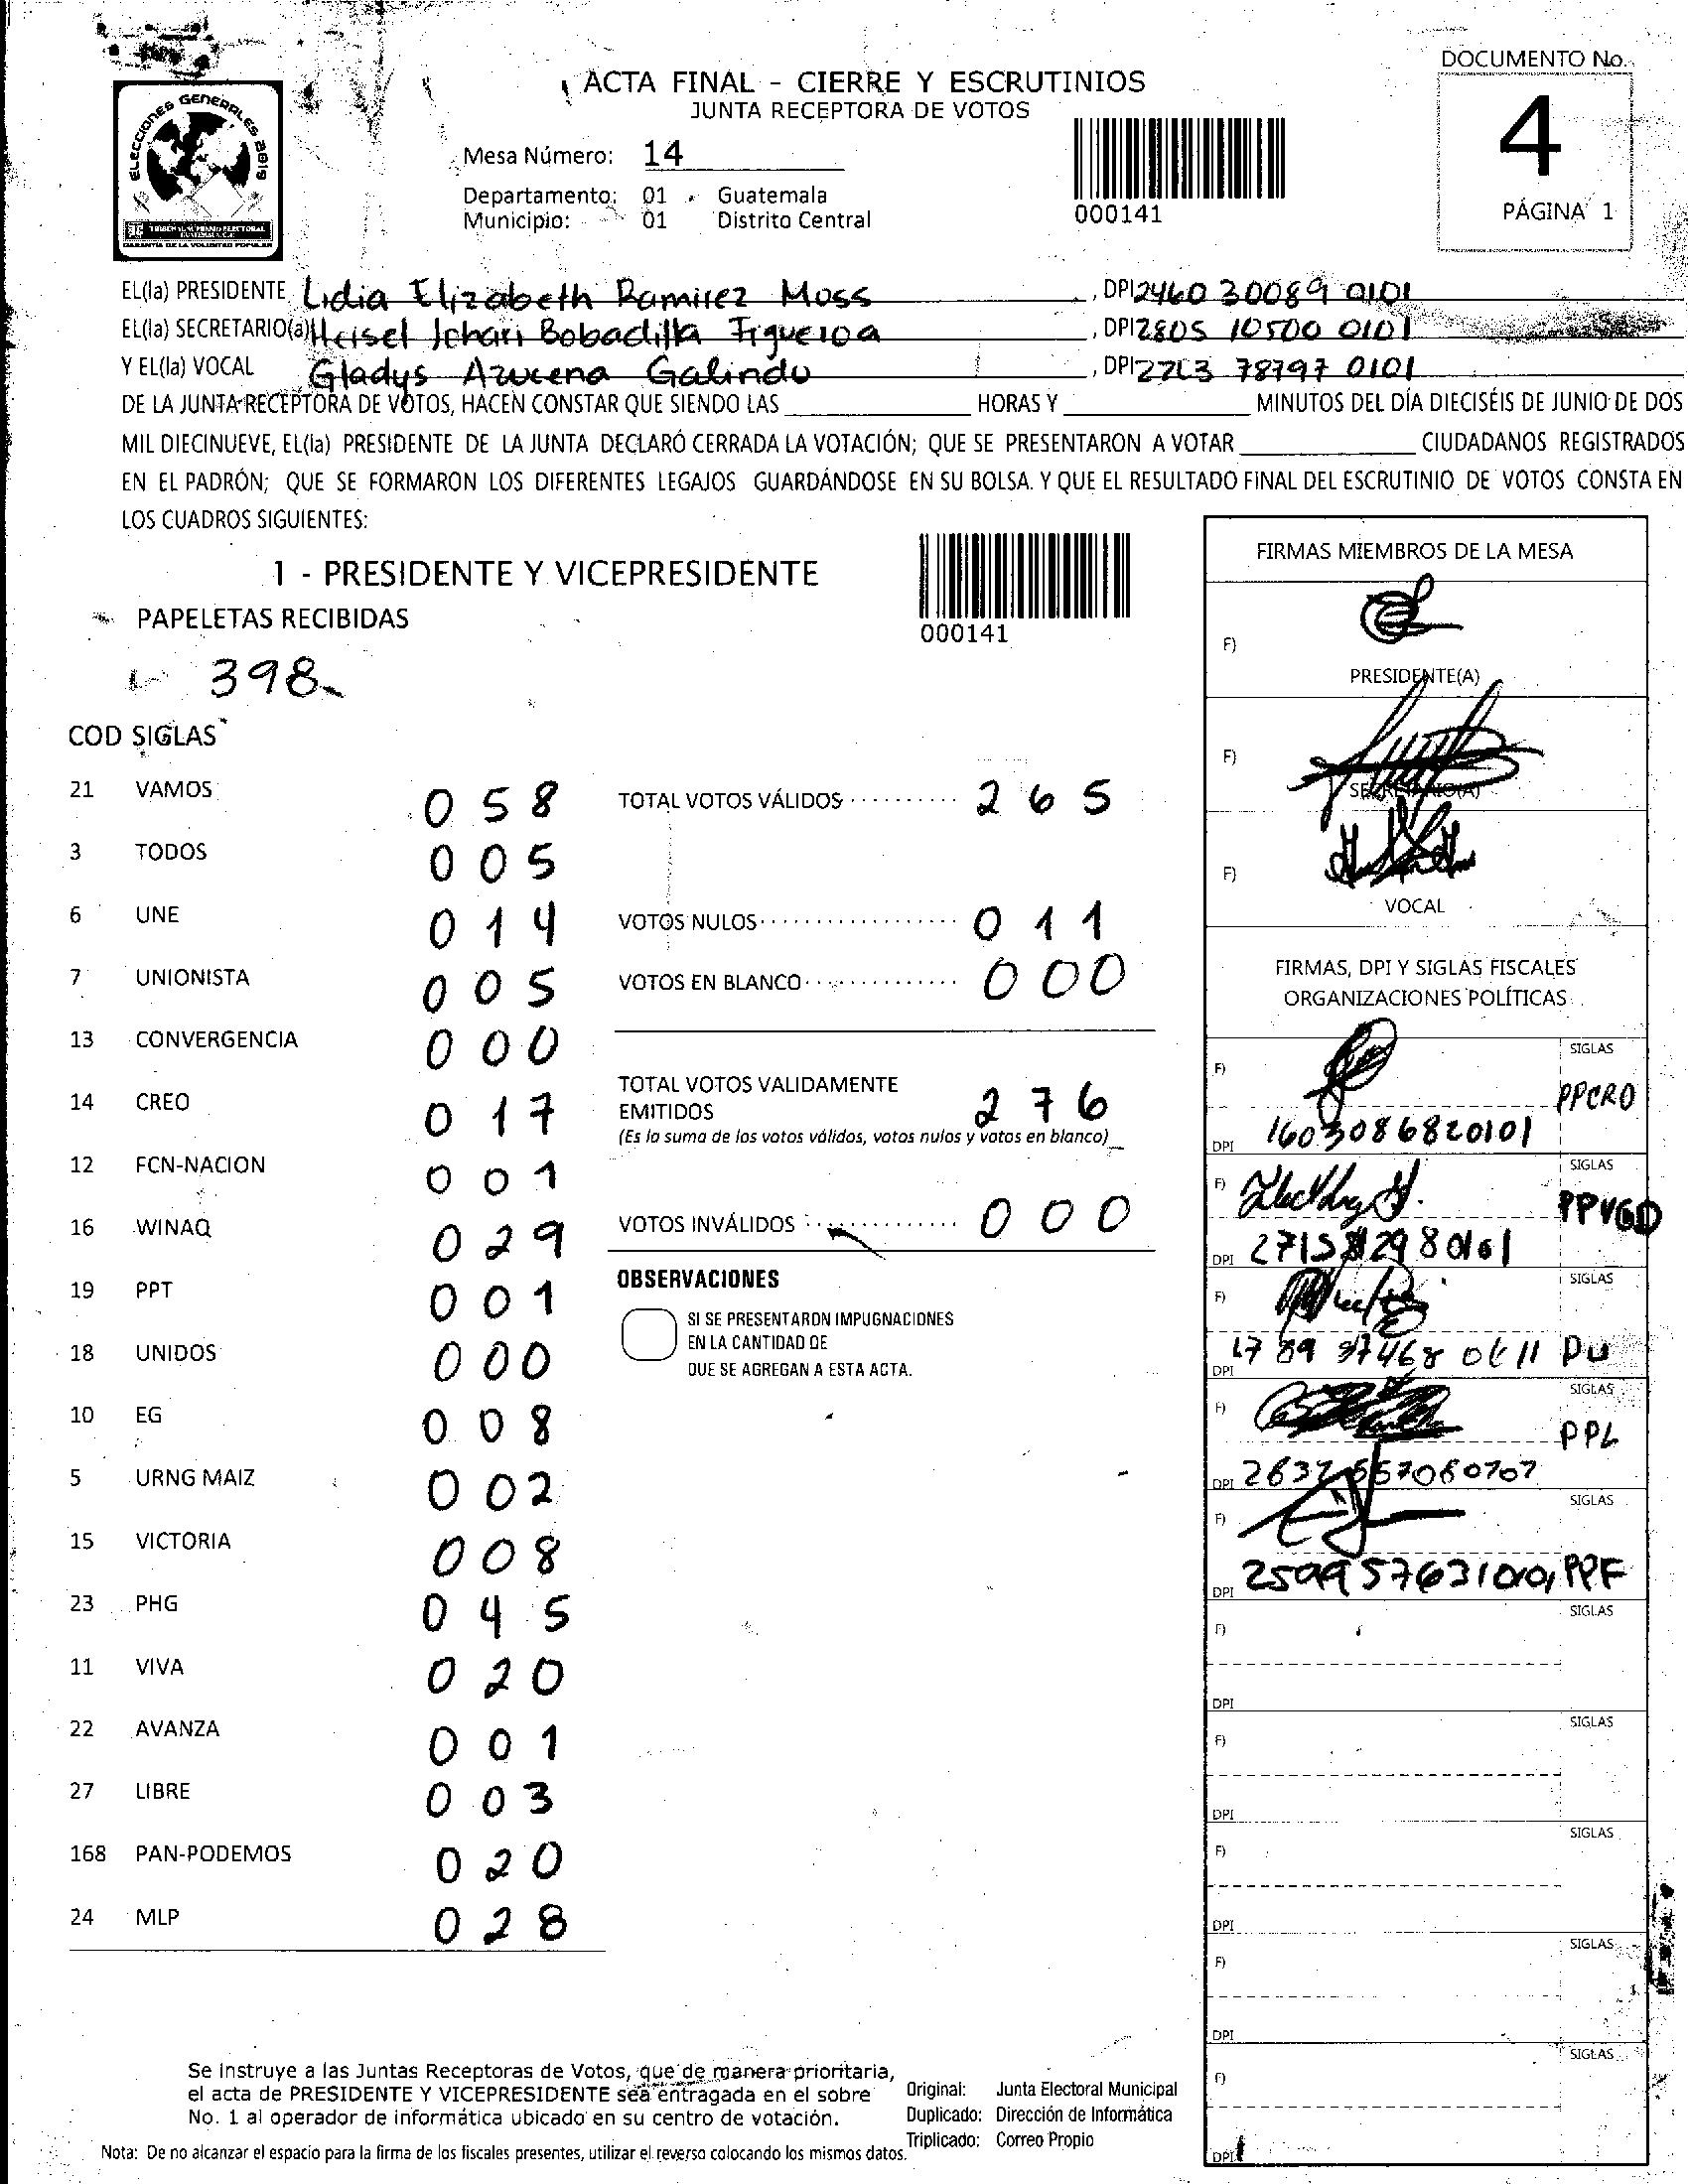 DOCUMENTO No.
4
PÁGINA 1
ELECCIONES GENERALES 2019
TRIBUNAL SUPREMO ELECTORAL
GUATEMALA, C.A.
GARANTÍA DE LA VOLUNTAD POPULAR
ACTA FINAL - CIERRE Y ESCRUTINIOS
JUNTA RECEPTORA DE VOTOS
Mesa Número: 14
Departamento: 01 Guatemala
Municipio: 01 Distrito Central
000141
EL(la) PRESIDENTE Lidia Elizabeth Ramirez Moss, DPI 2460 30089 0101
EL(la) SECRETARIO(a) Heisel Johari Bobadilla Figueroa, DPI 2805 10500 0101
Y EL(la) VOCAL Gladys Azucena Galindo, DPI 78797 0101
DE LA JUNTA RECEPTORA DE VOTOS, HACEN CONSTAR QUE SIENDO LAS HORAS Y MINUTOS DEL DÍA DIECISÉIS DE JUNIO DE DOS
MIL DIECINUEVE, EL(la) PRESIDENTE DE LA JUNTA DECLARÓ CERRADA LA VOTACIÓN; QUE SE PRESENTARON A VOTAR CIUDADANOS REGISTRADOS
EN EL PADRÓN; QUE SE FORMARON LOS DIFERENTES LEGAJOS GUARDÁNDOSE EN SU BOLSA. Y QUE EL RESULTADO FINAL DEL ESCRUTINIO DE VOTOS CONSTA EN
LOS CUADROS SIGUIENTES:
1 - PRESIDENTE Y VICEPRESIDENTE
PAPELETAS RECIBIDAS
398
000141
COD SIGLAS
21 VAMOS 058
3 TODOS 005
6 UNE 014
7 UNIONISTA 005
13 CONVERGENCIA 000
14 CREO 017
12 FCN-NACION 001
16 WINAQ 029
19 PPT 001
18 UNIDOS 000
10 EG 008
5 URNG MAIZ 002
15 VICTORIA 008
23 PHG 045
11 VIVA 020
22 AVANZA 001
27 LIBRE 003
168 PAN-PODEMOS 020
24 MLP 028
TOTAL VOTOS VÁLIDOS 265
VOTOS NULOS 011
VOTOS EN BLANCO 000
TOTAL VOTOS VALIDAMENTE
EMITIDOS 276
(Es la suma de los votos válidos, votos nulos y votos en blanco)
VOTOS INVÁLIDOS 000
OBSERVACIONES
SI SE PRESENTARON IMPUGNACIONES
EN LA CANTIDAD DE
QUE SE AGREGAN A ESTA ACTA.
FIRMAS MIEMBROS DE LA MESA
F)
PRESIDENTE(A)
F)
SECRETARIO(A)
F)
VOCAL
FIRMAS, DPI Y SIGLAS FISCALES
ORGANIZACIONES POLÍTICAS
F) SIGLAS
PPCRO
DPI 1603086820101
F) SIGLAS
PPVGD
DPI
F) SIGLAS
DPI PU
F) SIGLAS
PPL
DPI
F) SIGLAS
DPI PPF
SIGLAS
F)
DPI
SIGLAS
F)
DPI
SIGLAS
F)
DPI
SIGLAS
F)
DPI
SIGLAS
F)
DPI
Se instruye a las Juntas Receptoras de Votos, que de manera prioritaria,
el acta de PRESIDENTE Y VICEPRESIDENTE sea entragada en el sobre
No. 1 al operador de informática ubicado en su centro de votación.
Original: Junta Electoral Municipal
Duplicado: Dirección de Informática
Triplicado: Correo Propio
Nota: De no alcanzar el espacio para la firma de los fiscales presentes, utilizar el reverso colocando los mismos datos.